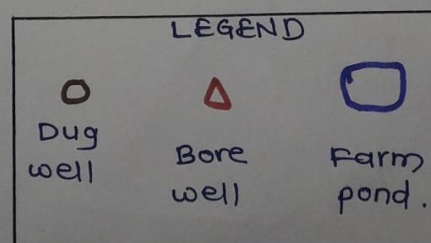 LEGEND
Dug
well
Bore
well
Farm
pond.